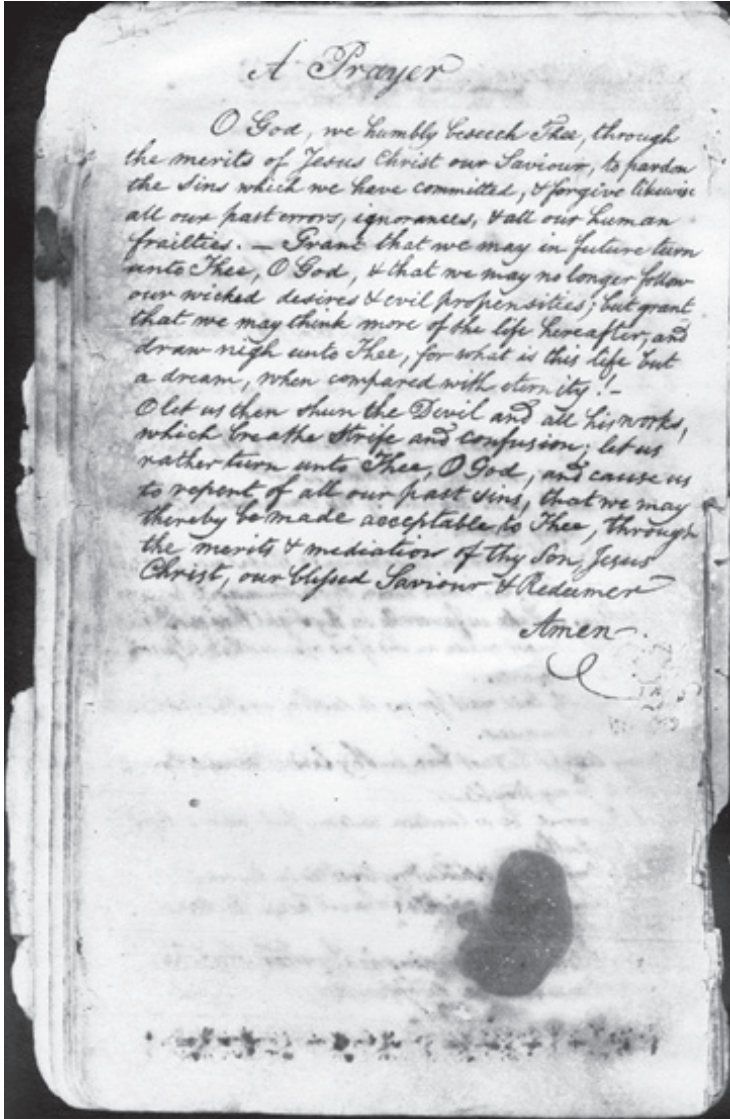 A Prayer
O God, we humbly beseech Thee, through
the merits of Jesus Christ our Saviour, to pardon
the sins which we have committed, & forgive likewise
all our past errors, ignorances, & all our human
frailties. — Grant that we may in future turn
unto Thee, O God, & that we may no longer follow
our wicked desires & evil propensities; but grant
that we may think more of the life hereafter, and
draw nigh unto Thee, for what is this life but
a dream, when compared with eternity! —
O let us then shun the Devil and all his works,
which breathe strife and confusion; let us
rather turn unto Thee, O God, and cause us
to repent of all our past sins, that we may
thereby be made acceptable to Thee, through
the merits & mediation of thy Son, Jesus
Christ, our blessed Saviour & Redeemer
Amen